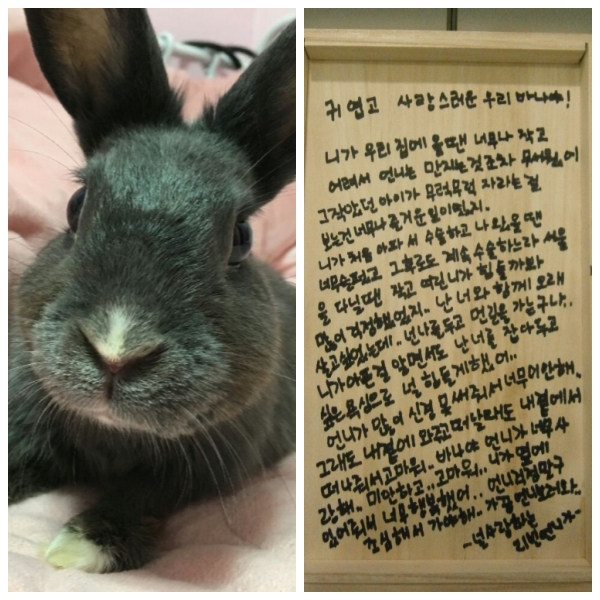 귀엽고 사랑스러운 우리 바나야!
니가 우리 집에 올땐 너무나 작고
어려서 언니는 만지는것조차 무서웠어
그작았던 아이가 무럭무럭 자라는걸
보는건 너무나 즐거운일이였지.
니가 처음 아파서 수술하고 나왔을 땐
너무슬펐고 그후로도 계속 수술하느라 서울
을 다닐땐 작고 여린니가 힘들까봐
많이 걱정했었지.. 난 너와 함께 오래
살고싶었는데.. 넌나를두고 먼길을 가는구나..
니가아픈걸 알면서도 난 너를 잡아두고
싶은욕심으로 널 힘들게했어..
언니가 많이 신경 못써줘서너무미안해.
그래도 내곁에 와주고떠날때도 내곁에서
떠나줘서고마워.. 바나야 언니가 너무사
랑해.. 미안하고..고마워.. 니가 옆에
있어줘서 너무행복했어.. 언니걱정말구
조심해서 가야해. 가끔 언니보러와..
-널사랑하는
언니가-